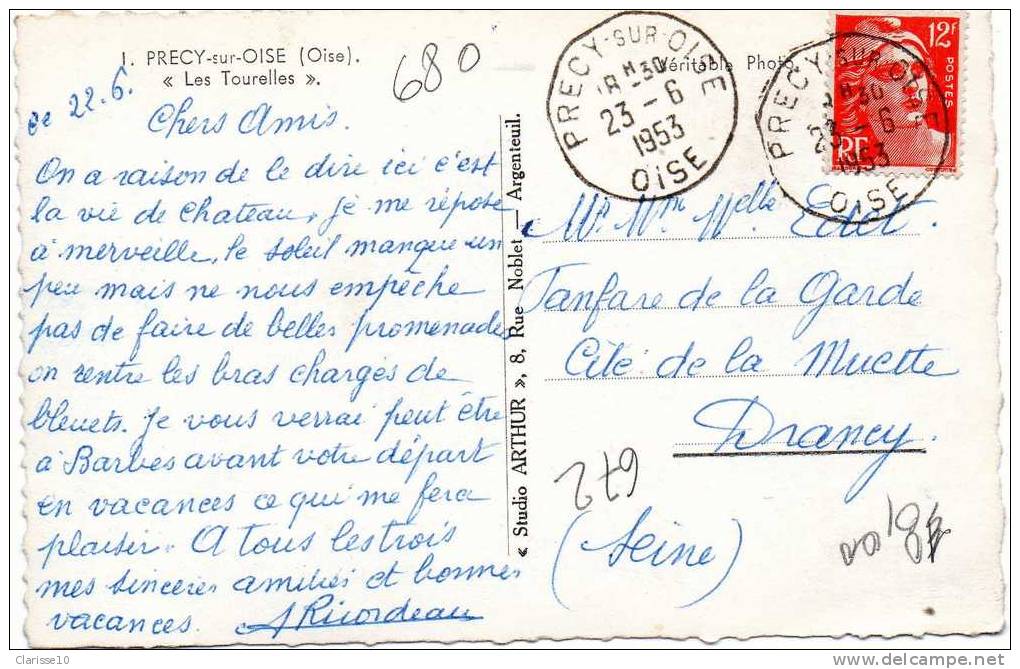 1. PRECY-sur-OISE (Oise).
« Les Tourelles ».
680
Ce 22.6.
Chers Amis.
On a raison de le dire ici c'est
la vie de Chateau. Je me repose
à merveille, le soleil manque un
peu mais ne nous empêche
pas de faire de belles promenades
on rentre les bras chargés de
bleuets. Je vous verrai peut être
à Barbès avant votre départ
en vacances ce qui me fera
plaisir. A tous les trois
mes sincères amitiés et bonnes
vacances. A Ricordeau
« Studio ARTHUR », 8, Rue Noblet — Argenteuil.
Véritable Photo.
PRECY-SUR-OISE
18H30
23-6
1953
OISE
PRECY-SUR-OISE
18H30
23-6
1953
OISE
12F
POSTES
RF
Mr. Mme Melle
Fanfare de la Garde
Cité de la Muette
Drancy.
(Seine)
672
Clarisse10
www.delcampe.net